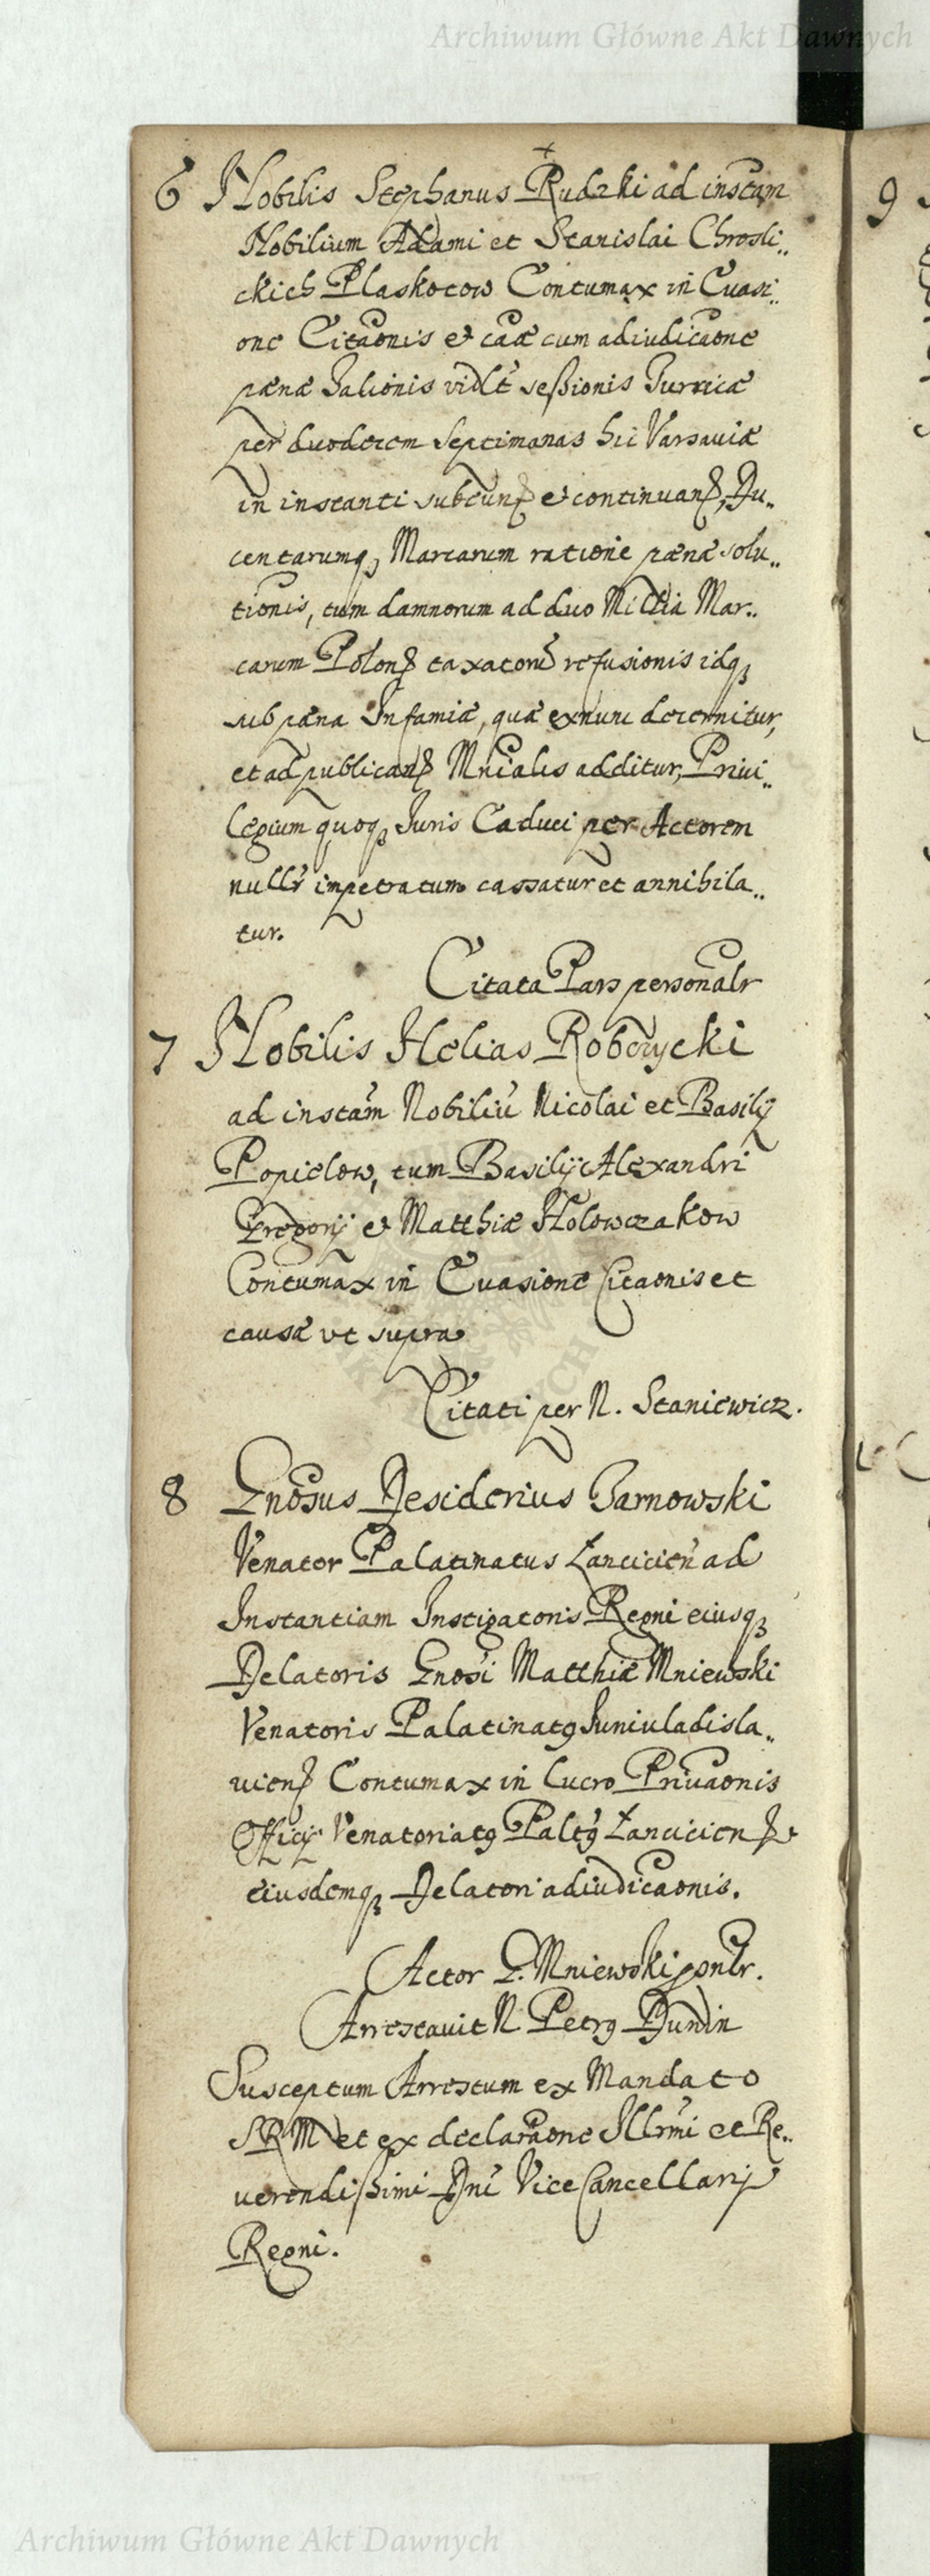 Archiwum Główne Akt Dawnych
6 Nobilis Stephanus Rudzki ad instam
Nobilium Adami et Stanislai Chrosli..
ckich Plaskotow Contumax in Evasi..
one Citaonis et cae cum adiudicaone
pænæ Talionis vidlt seßionis Turricæ
per duodecem Septimanas hic Varsaviæ
in instanti subeun et continuan, Du..
centarumq, Marcarum ratione pænæ solu..
tionis, tum damnorum ad duo Millia Mar..
carum Polon taxatorũ refusionis idq
sub pæna Infamiæ, quæ exnunc decernitur,
et ad publican Mnialis additur, Privi..
legium quoq Juris Caduci per Actorem
nullr impetratum cassatur et annihila..
tur.
Citata Pars personalr
7 Nobilis Helias Robczycki
ad instam Nobiliũ Nicolai et Basilij
Popielow, tum Basilij Alexandri
Gregorij et Matthiæ Holowczakow
Contumax in Evasione Citaonis et
causæ vt supra
Citati per N. Staniewicz.
8 Gnosus Desiderius Tarnowski
Venator Palatinatus Lancicien ad
Instantiam Instigatoris Regni eiusq
Delatoris Gnosi Matthiæ Mniewski
Venatoris Palatinatg Juniuladisla..
vien Contumax in lucro Privaonis
Officij Venatoriatg Paltg Lancicien et
eiusdemq Delatori adiudicaonis.
Actor G. Mniewski ponlr.
Arrestavit N Petrg Dunin
Susceptum Arrestum ex Mandato
SRM et ex declaraone Illrmi et Re..
verendißimi Dni Vice Cancellarij
Regni.
9
Archiwum Główne Akt Dawnych